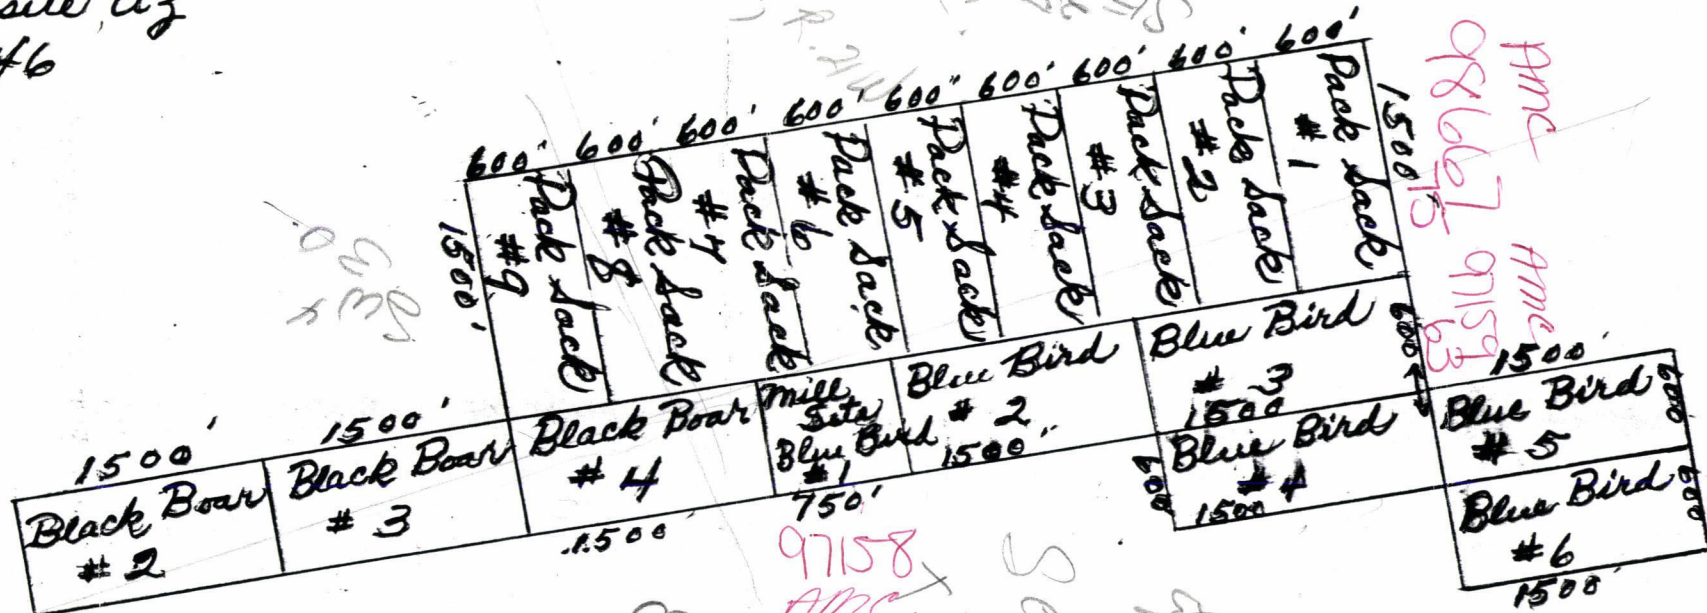 46
600' 600' 600' 600' 600" 600' 600' 600' 600'
1500'
Pack Sack
#9
Pack Sack
#8
Pack Sack
#7
Pack Sack
#6
Pack Sack
#5
Pack Sack
#4
Pack Sack
#3
Pack Sack
#2
Pack Sack
#1
1500'
600'
AMC
98667
75
AMC
97159
63
1500'
1500'
Black Boar
#2
Black Boar
#3
Black Boar
#4
1500'
Mill
Site
Blue Bird
#1
750'
Blue Bird
#2
1500"
Blue Bird
#3
1500
Blue Bird
#4
600
1500'
1500'
Blue Bird
#5
600'
Blue Bird
#6
600'
1500'
97158
AMC
SW4
30